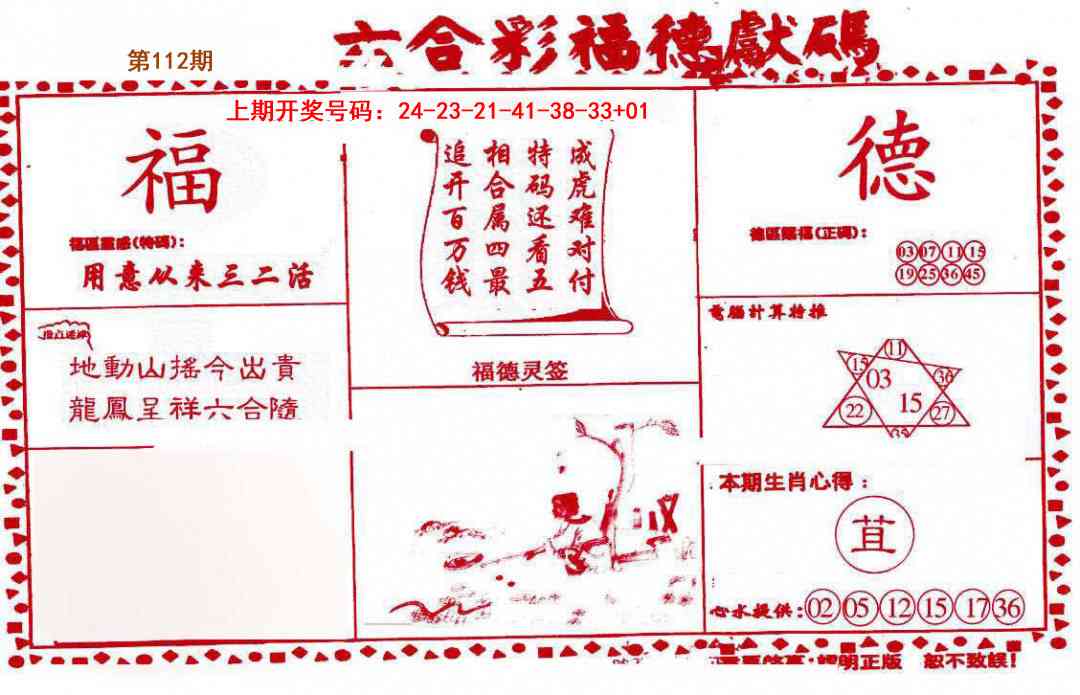 六合彩福德獻碼
第112期
上期开奖号码：24-23-21-41-38-33+01
福
福區靈感(特碼)：
用意从来三二活
成虎难对付
特码还看五
相合属四最
追开百万钱
福德灵签
德
德區賜福(正碼)：
03 07 11 15
19 25 36 45
地動山搖今出貴
龍鳳呈祥六合隨
電腦計算特推
11
15 36
03
15
22 27
本期生肖心得：
苴
心水提供：02 05 12 15 17 36
認明正版 恕不致誤！